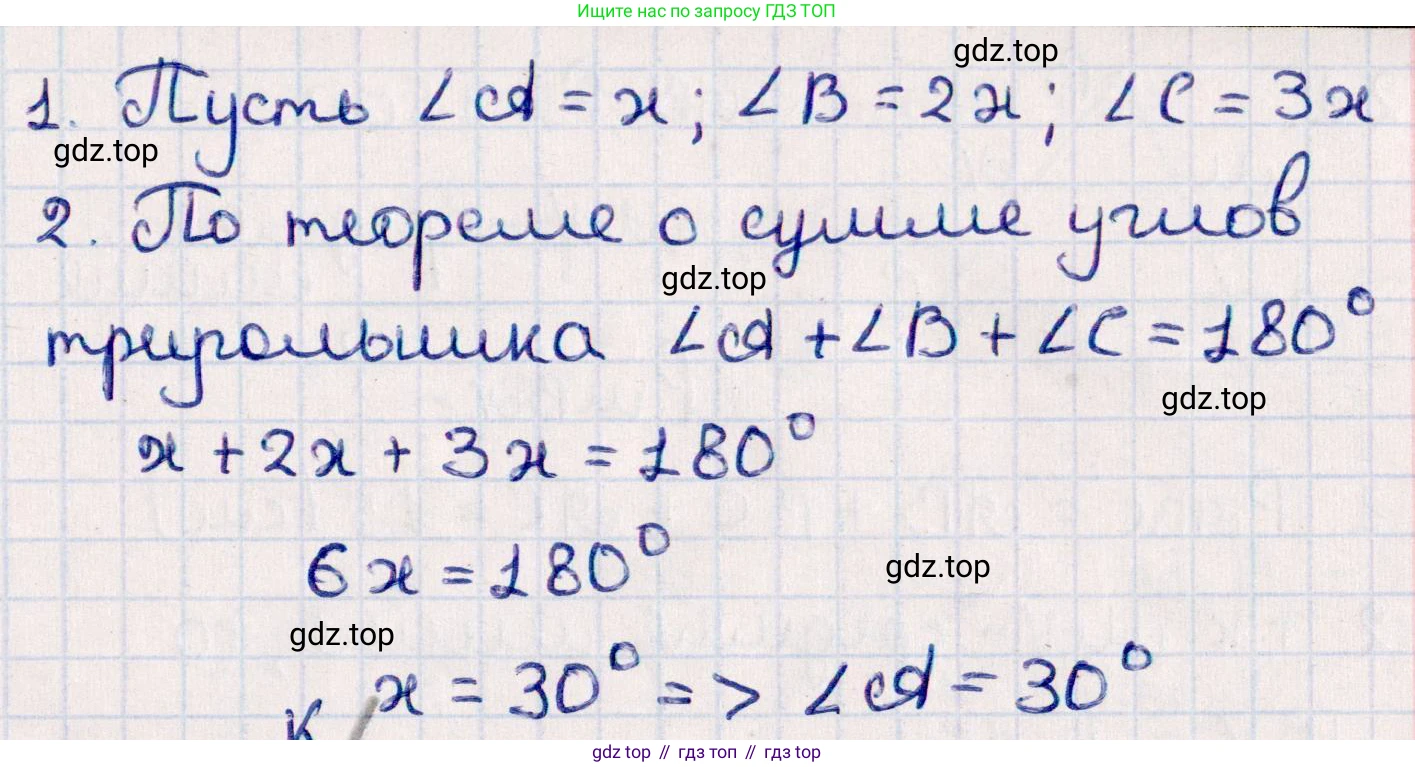 Ищите нас по запросу ГДЗ ТОП
gdz.top
1. Пусть ∠A = x; ∠B = 2x; ∠C = 3x
gdz.top
2. По теореме о сумме углов
gdz.top
треугольника ∠A + ∠B + ∠C = 180°
gdz.top
x + 2x + 3x = 180°
6x = 180°
gdz.top
gdz.top
x = 30° => ∠A = 30°
gdz top // гдз топ // gdz top